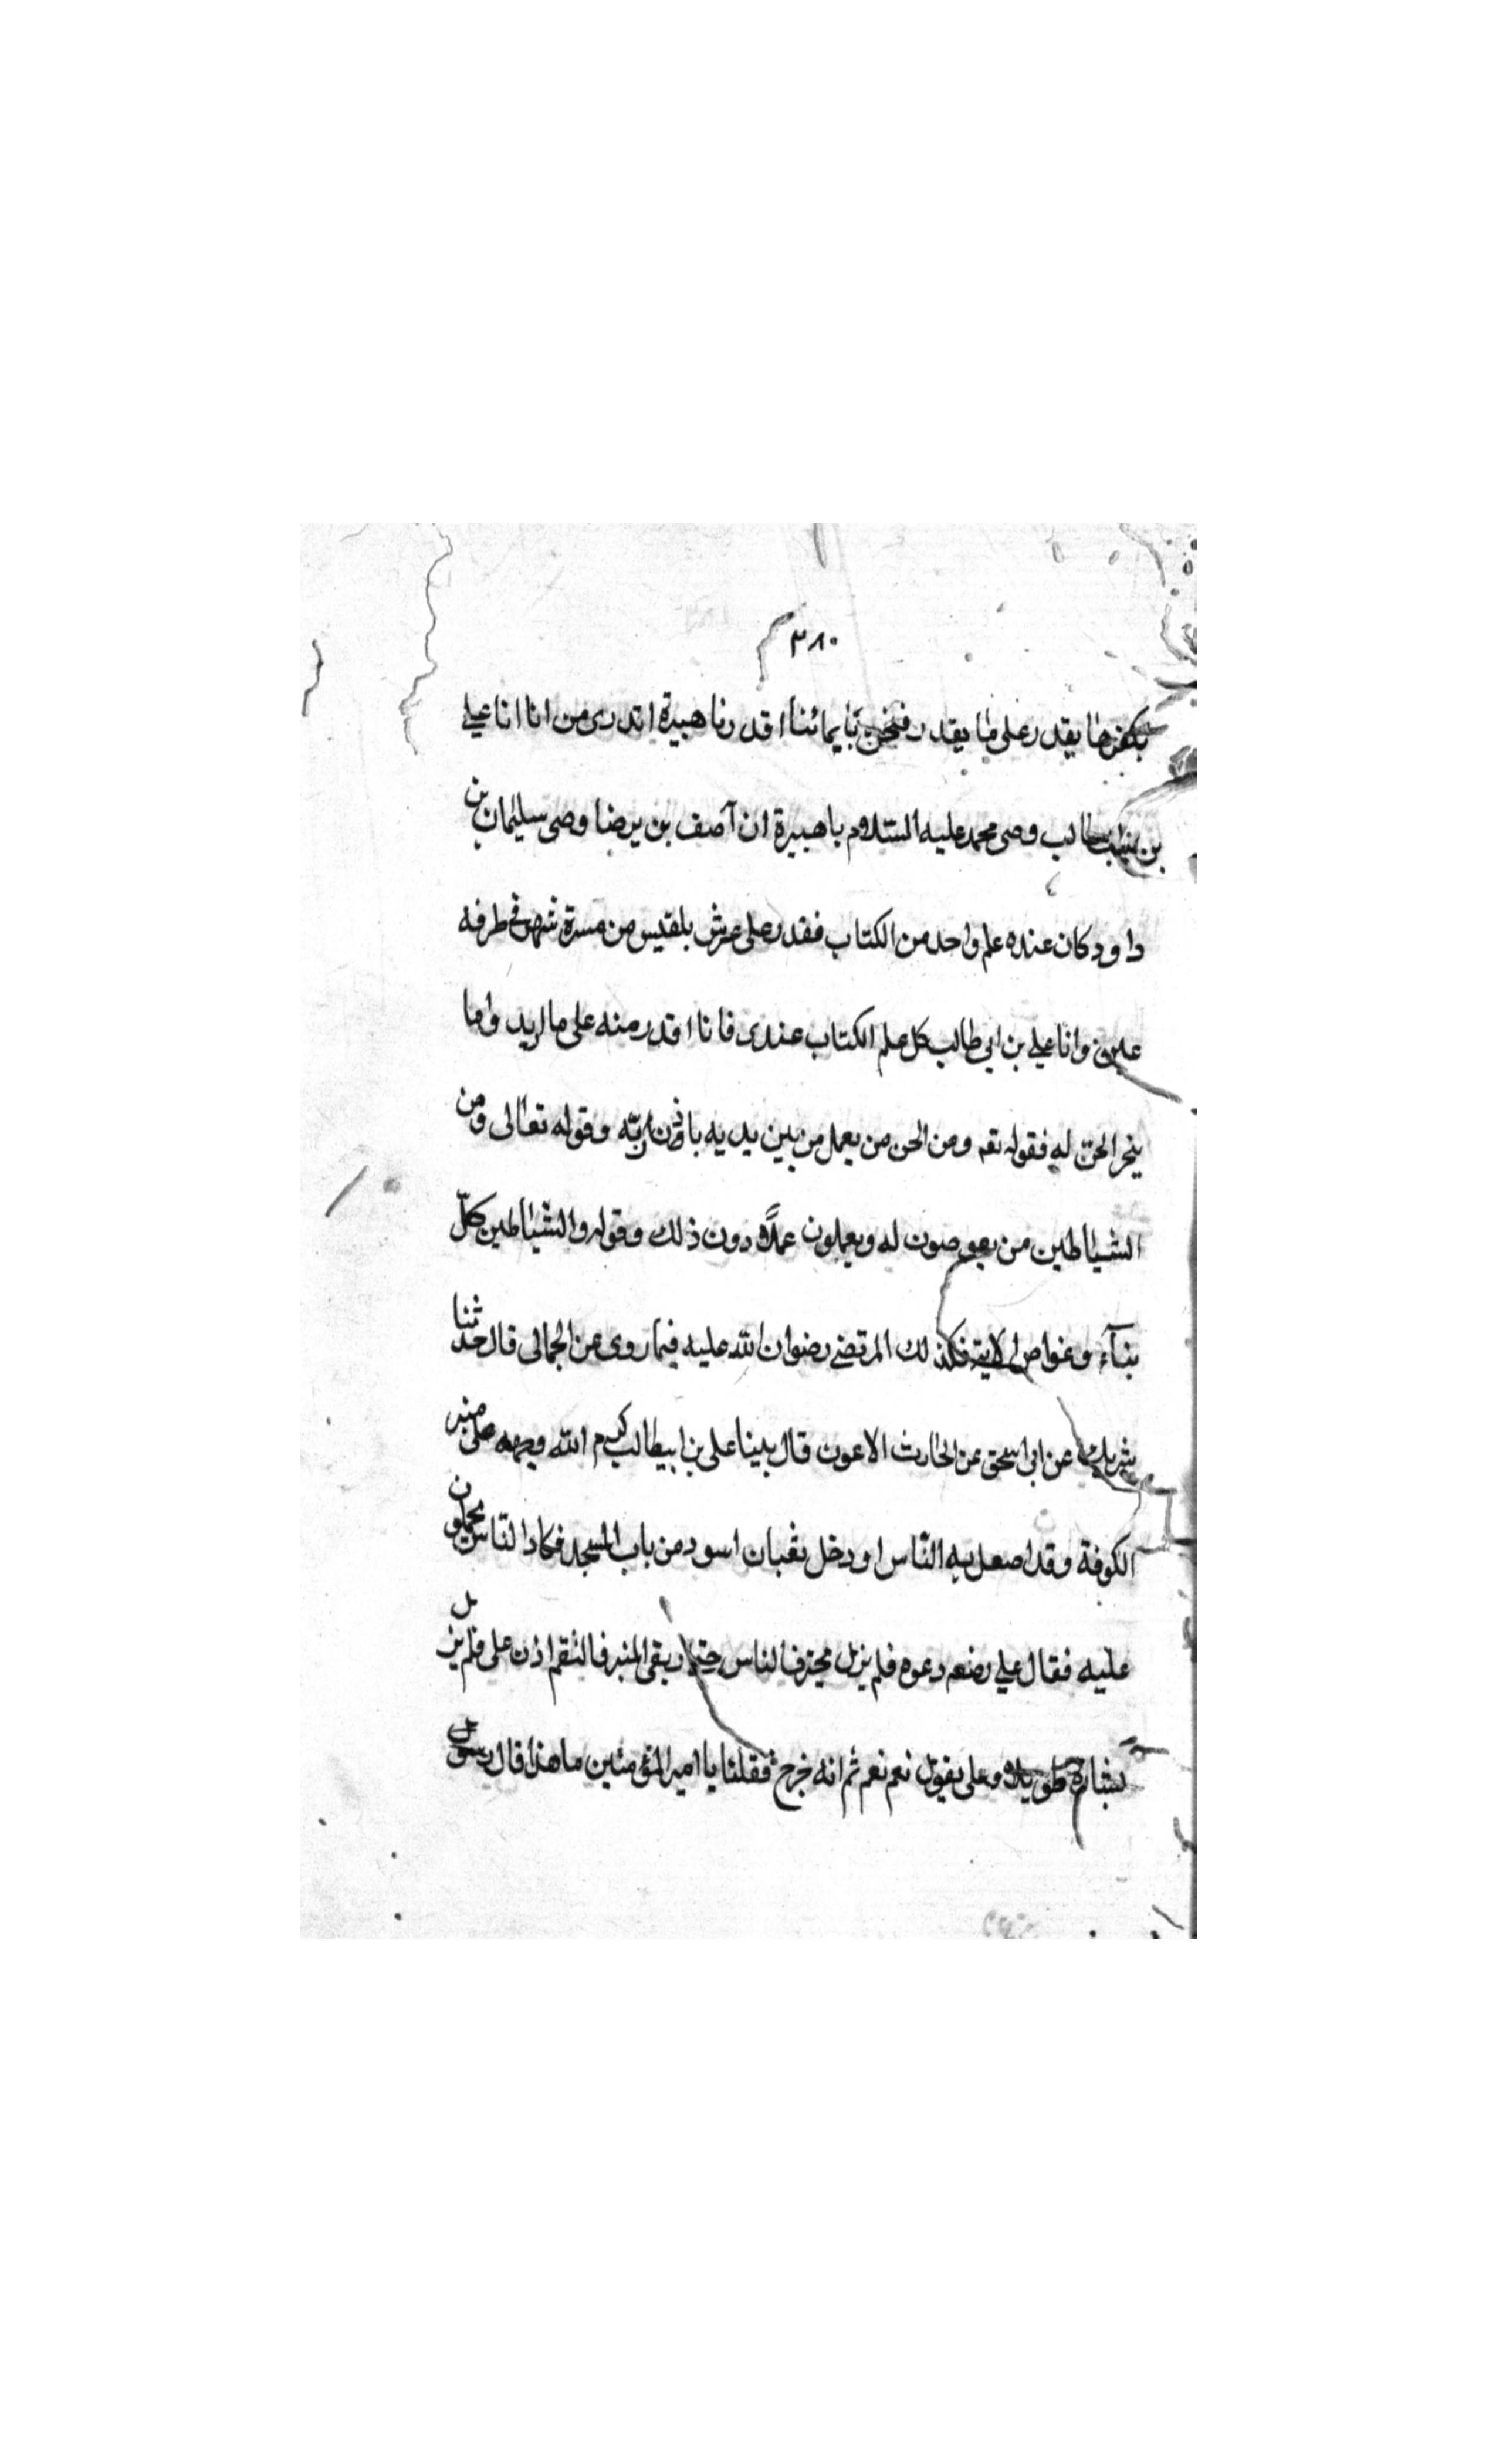 ٣٨٠
بكفرها يقدر على ما يقدر فنحن بايمائنا اقدر نا هبيرة اتدرى من انا انا على
بن ابيطالب وصى محمد عليه السلام يا هبيرة ان آصف بن برضا وصى سليمان بن
داود كان عنده علم واحد من الكتاب فقدر على عرش بلقيس من مسرة شهر فى طرفه
عين وانا على بن ابى طالب كل علم الكتاب عندى فانا اقدر منه على ما اريد واما
الجن له فقوله تعه ومن الجن من يعمل من بين يديه باذن ربّه وقوله تعالى ومن
الشياطين من يغوصون له ويعملون عملاً دون ذلك وقوله والشياطين كلّ
بنآء وغواص الاية فكذلك المرتضى رضوان الله عليه فيما روى عن الجمالى قال حدثنا
شريك عن ابى اسحق عن الحارث الاعون قال بينا على بن ابيطالب كرم الله وجهه على منبر
الكوفة وقد اصعل به الناس اودخل ثعبان اسود من باب المسجد فكاد الناس يحملون
عليه فقال على رضعه دعوه فلم يزل محترف الناس حتى ارتقى المنبر فالتقم اذن على فلم يزل
طويلاً وعلى يقول نعم نعم ثم انه خرج فقلنا يا امير المؤمنين ما هذا قال رسول